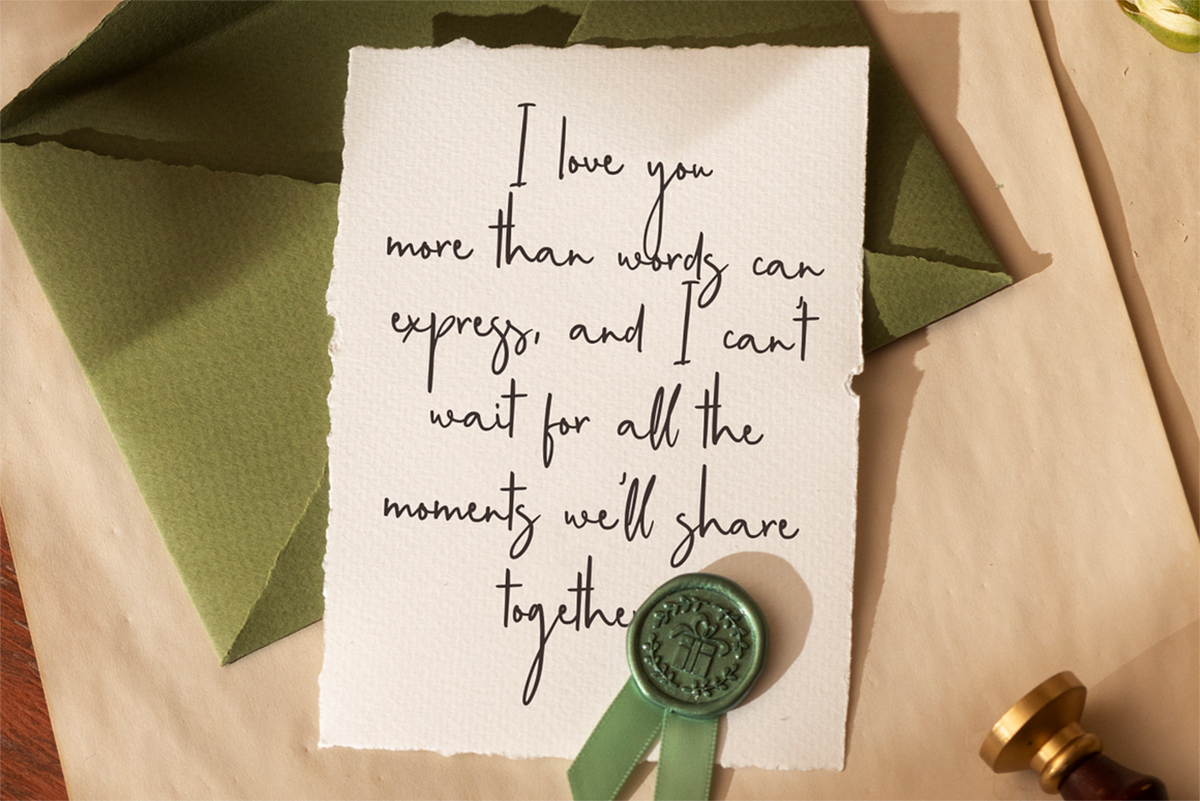 I love you
more than words can
express, and I can't
wait for all the
moments we'll share
together